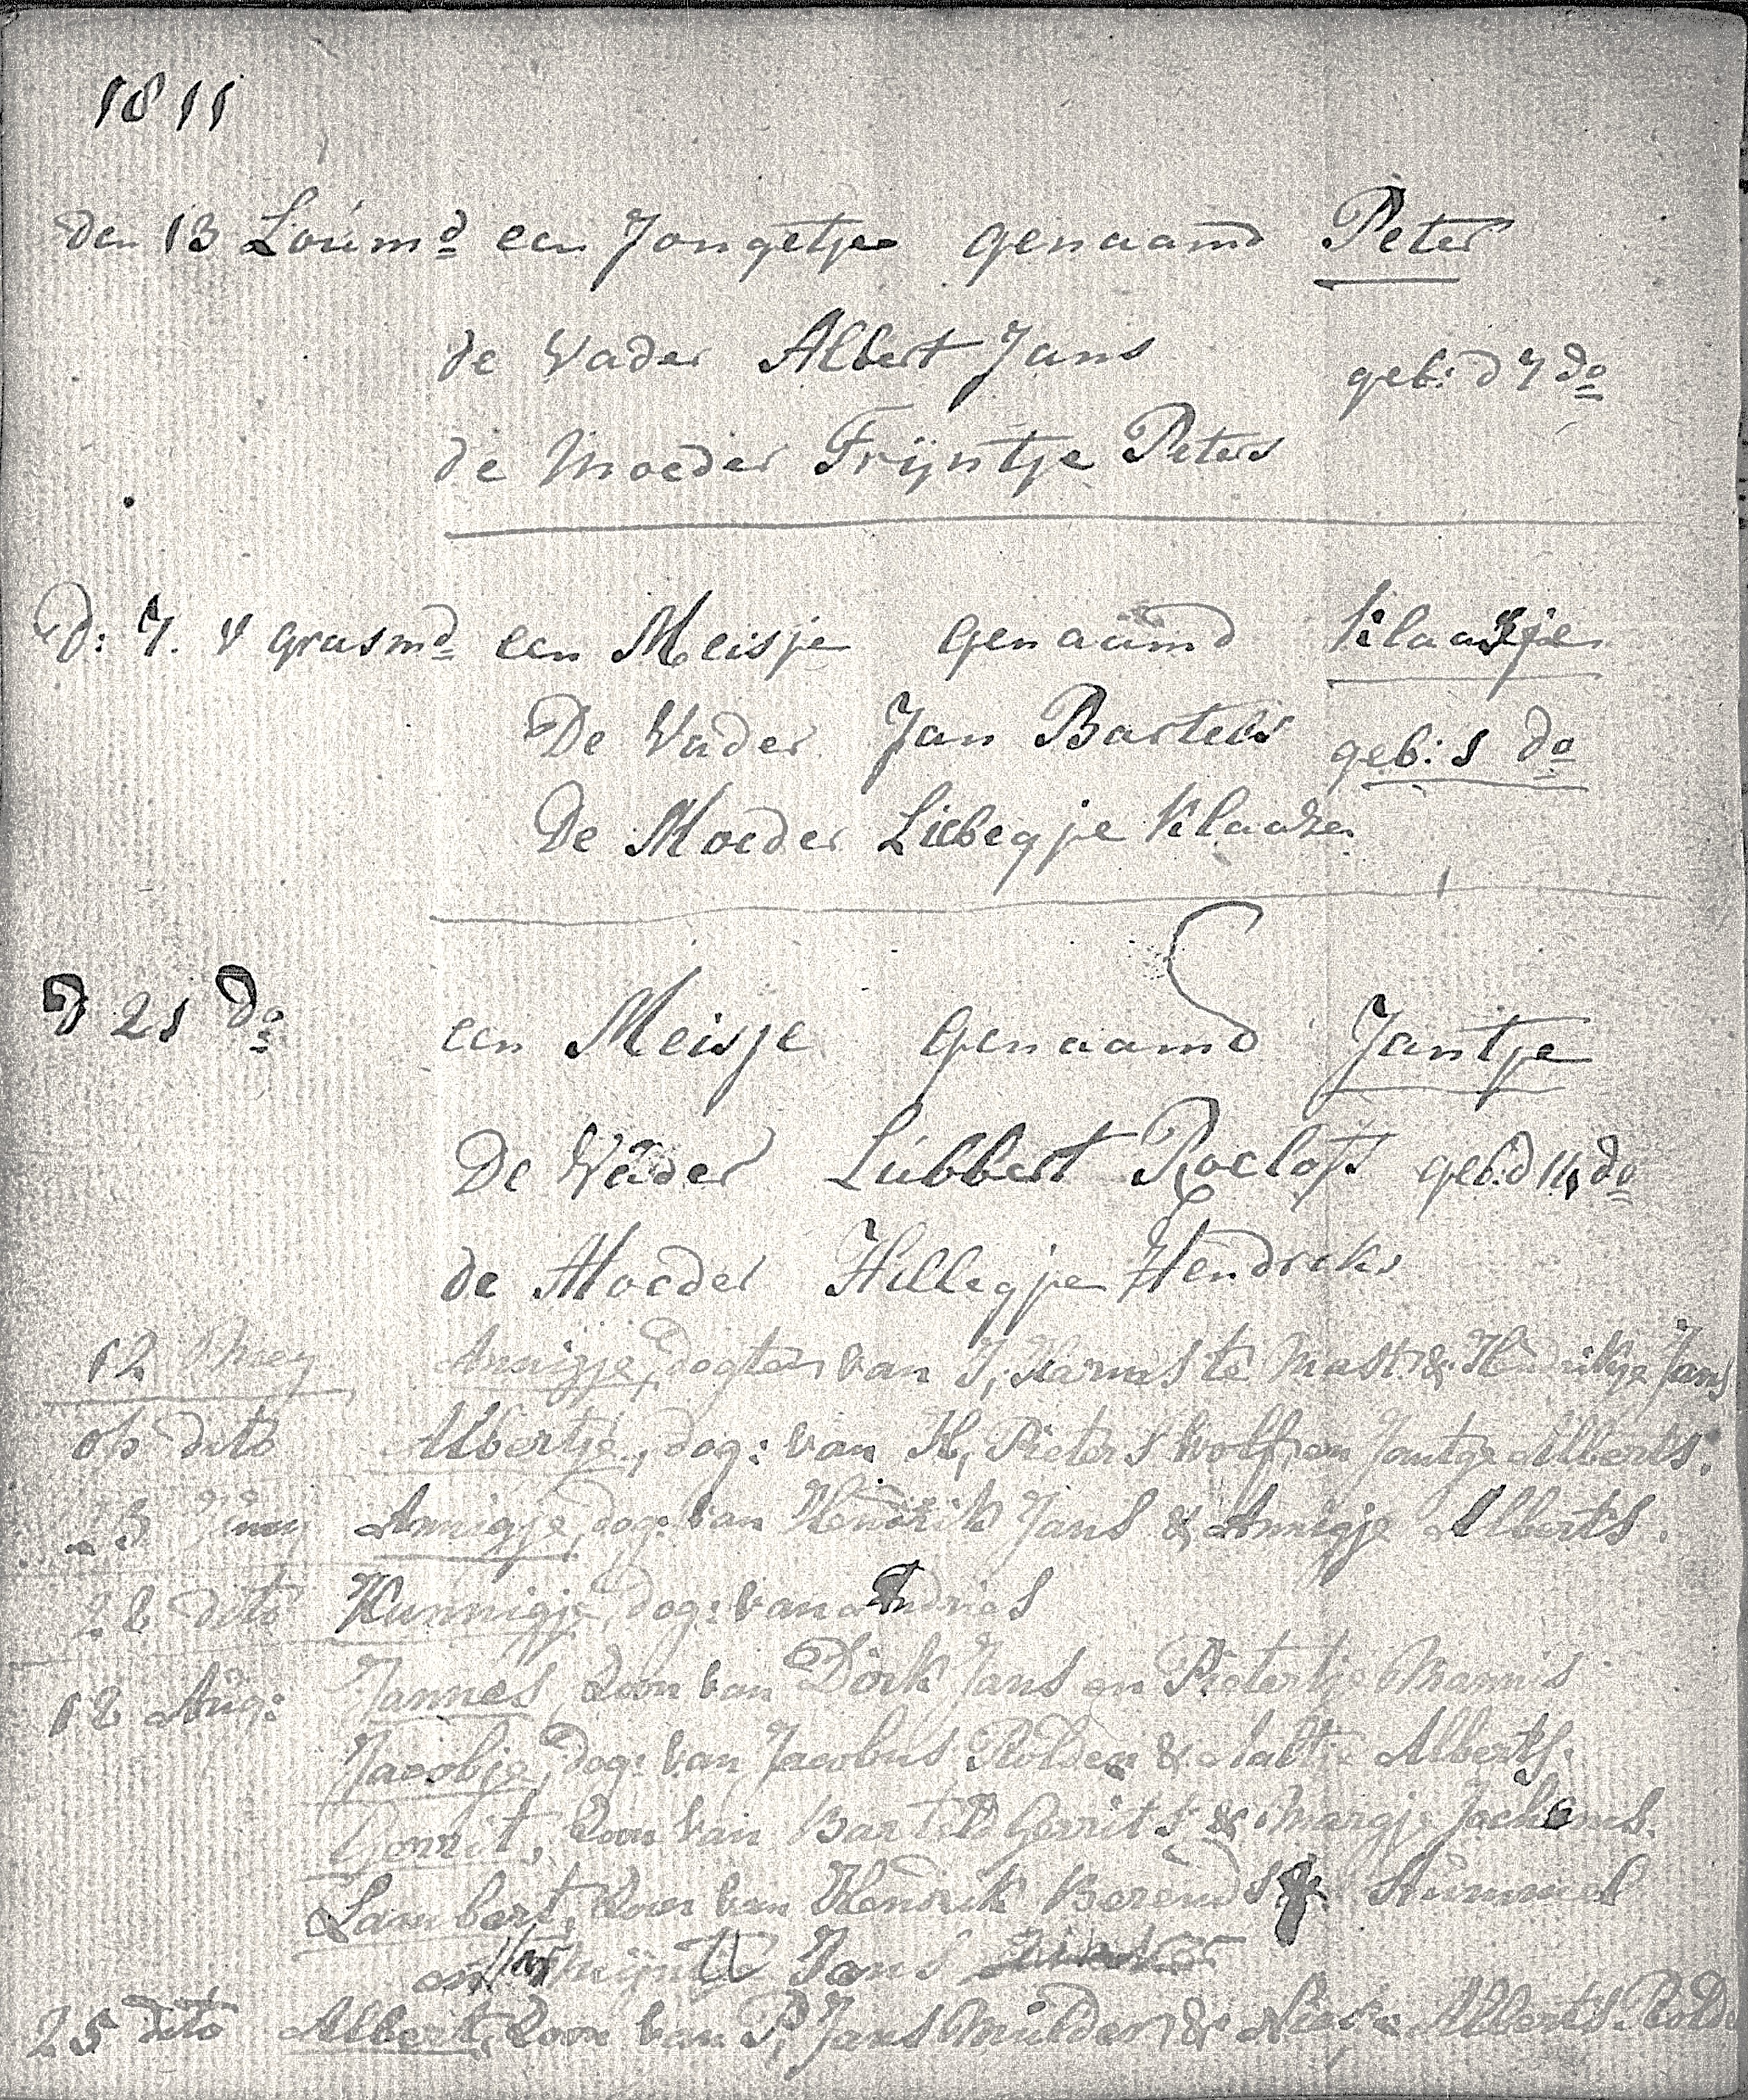 1811
den 13 Loúmd een Jongetje genaamd Peter
de Vader Albert Jans
geb: d 7 do
de Moeder Trijntje Peters
d: 7. v grasmd een Meisje genaamd Klaasje
De Vader Jan Bartels geb: 1 do
De Moeder Liebegje Klaaze
d 21 do een Meisje genaamd Jantje
De Vader Lubbert Roelofs geb: d 14 do
de Moeder Hillegje Hendreks
12 Mey Annigje, dogter van J, Harms te Mast & Hendrikje Jans
op dito Albertje, dog: van K, Pieters Wolf, en Jantje Alberts.
23 Juny Annigje, dog: van Hendrik Jans & Annigje Alberts.
28 dito Hunnigje, dog: van Andries
12 Aug: Jannes, Zoon van Dirk Jans en Pietertje Mannis
Jacobje, Dog: van Jacobus Rolden & Aaltje Alberts.
Gerrit, Zoon van Barteld Gerrits & Margje Jochems.
Lambert, Zoon van Hendrik Berends Stummel
en Jans
25 dito Albert, Zoon van P, Jans Mulder & Alberts.